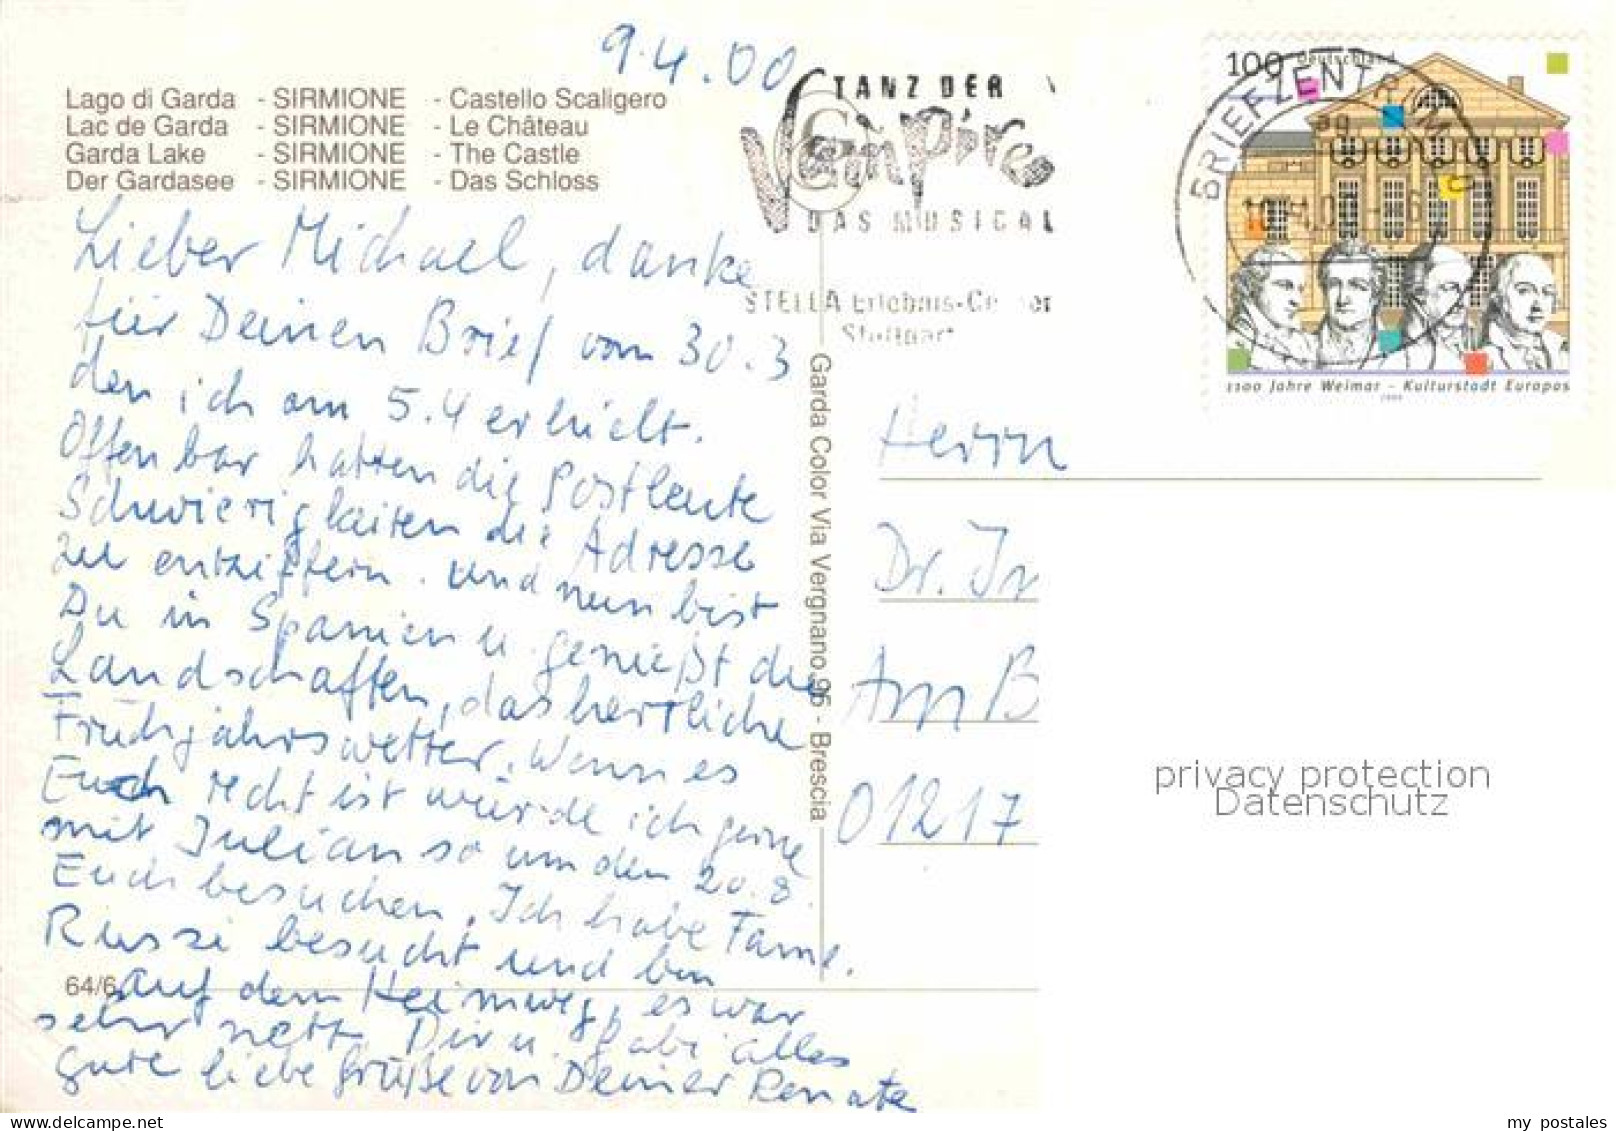 9.4.00
Lago di Garda - SIRMIONE - Castello Scaligero
Lac de Garda - SIRMIONE - Le Château
Garda Lake - SIRMIONE - The Castle
Der Gardasee - SIRMIONE - Das Schloss
TANZ DER
Vampire
DAS MUSICAL
STELLA Erlebnis-Center
Stuttgart
100 Deutschland
BRIEFZENTRUM
1100 Jahre Weimar - Kulturstadt Europas
1999
Lieber Michael, danke
für Deinen Brief vom 30.3
den ich am 5.4 erhielt.
Offenbar hatten die Postleute
Schwierigkeiten die Adresse
zu entziffern. und nun bist
Du in Spanien u. genießt die
Landschaften, das herrliche
Frühjahrswetter. Wenn es
Euch recht ist würde ich gerne
mit Julian so um den 20.8
Euch besuchen. Ich habe Fame.
Russi besucht und bin
auf dem Heimweg, es war
sehr nett. Dir u. Gabi alles
gute liebe Grüße von Deiner Renate
64/6
Garda Color Via Vergnano,95 - Brescia
Herrn
Dr. In
Am B
01217
privacy protection
Datenschutz
my postales